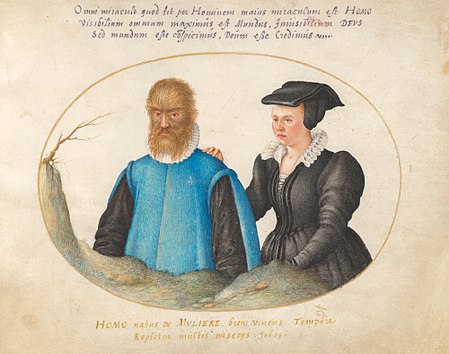 Omni miraculo quod fit per Hominem maius miraculum est HOMO
Visibilium omnium maximus est Mundus, Inuisibilium DEVS
Sed mundum esse conspicimus, Deum esse Credimus
I
HOMO natus de MVLIERE, breui viuens Tempore
Repletur multis miserijs: Iob 14.